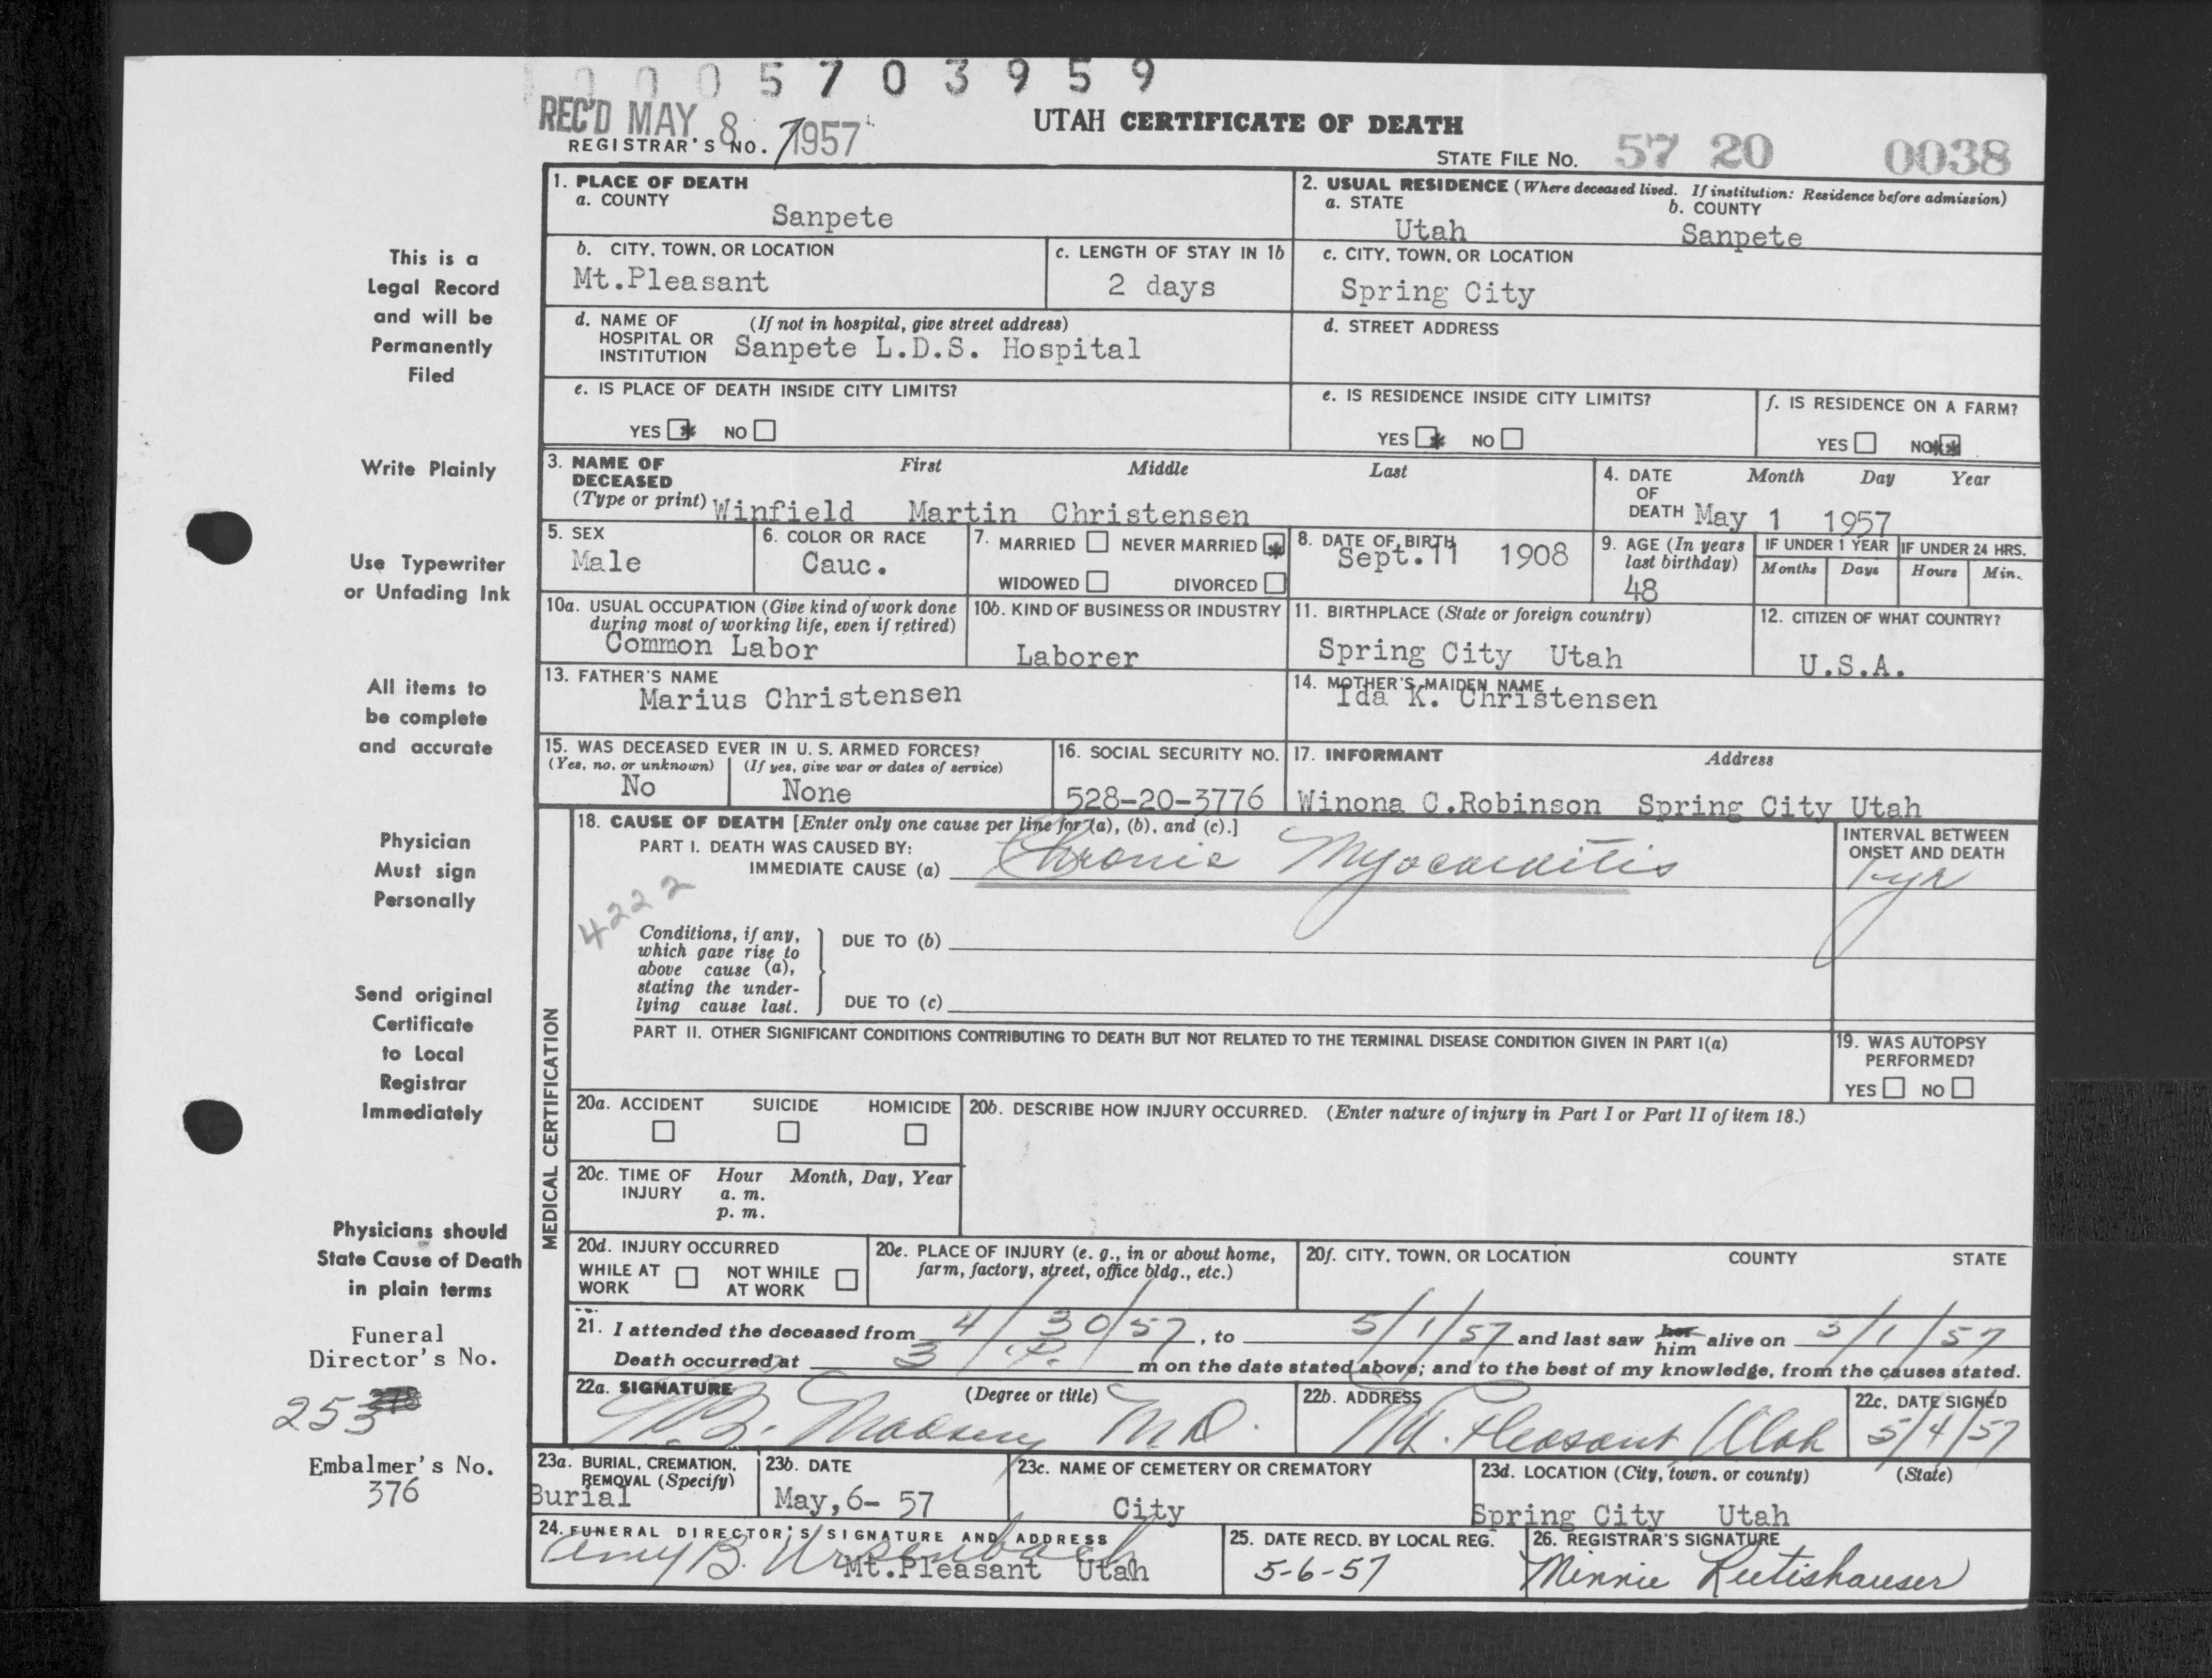 0005703959
REC'D MAY 8 1957
REGISTRAR'S NO. 7
UTAH CERTIFICATE OF DEATH
STATE FILE NO. 57 20 0038
1. PLACE OF DEATH
a. COUNTY
Sanpete
2. USUAL RESIDENCE (Where deceased lived. If institution: Residence before admission)
a. STATE
Utah
b. COUNTY
Sanpete
b. CITY, TOWN, OR LOCATION
Mt.Pleasant
c. LENGTH OF STAY IN 1b
2 days
c. CITY, TOWN, OR LOCATION
Spring City
d. NAME OF HOSPITAL OR INSTITUTION
(If not in hospital, give street address)
Sanpete L.D.S. Hospital
d. STREET ADDRESS
e. IS PLACE OF DEATH INSIDE CITY LIMITS?
YES NO
e. IS RESIDENCE INSIDE CITY LIMITS?
YES NO
f. IS RESIDENCE ON A FARM?
YES NO
3. NAME OF DECEASED
(Type or print)
First Middle Last
Winfield Martin Christensen
4. DATE OF DEATH
Month Day Year
May 1 1957
5. SEX
Male
6. COLOR OR RACE
Cauc.
7. MARRIED NEVER MARRIED
WIDOWED DIVORCED
8. DATE OF BIRTH
Sept.11 1908
9. AGE (In years last birthday)
48
IF UNDER 1 YEAR
Months Days
IF UNDER 24 HRS.
Hours Min.
10a. USUAL OCCUPATION (Give kind of work done during most of working life, even if retired)
Common Labor
10b. KIND OF BUSINESS OR INDUSTRY
Laborer
11. BIRTHPLACE (State or foreign country)
Spring City Utah
12. CITIZEN OF WHAT COUNTRY?
U.S.A.
13. FATHER'S NAME
Marius Christensen
14. MOTHER'S MAIDEN NAME
Ida K. Christensen
15. WAS DECEASED EVER IN U. S. ARMED FORCES?
(Yes, no, or unknown)
No
(If yes, give war or dates of service)
None
16. SOCIAL SECURITY NO.
528-20-3776
17. INFORMANT Address
Winona C.Robinson Spring City Utah
MEDICAL CERTIFICATION
18. CAUSE OF DEATH [Enter only one cause per line for (a), (b), and (c).]
PART I. DEATH WAS CAUSED BY:
IMMEDIATE CAUSE (a) Chronic Myocarditis
INTERVAL BETWEEN ONSET AND DEATH
1 yr
4222
Conditions, if any, which gave rise to above cause (a), stating the underlying cause last.
DUE TO (b)
DUE TO (c)
PART II. OTHER SIGNIFICANT CONDITIONS CONTRIBUTING TO DEATH BUT NOT RELATED TO THE TERMINAL DISEASE CONDITION GIVEN IN PART I(a)
19. WAS AUTOPSY PERFORMED?
YES NO
20a. ACCIDENT SUICIDE HOMICIDE
20b. DESCRIBE HOW INJURY OCCURRED. (Enter nature of injury in Part I or Part II of item 18.)
20c. TIME OF INJURY
Hour Month, Day, Year
a. m.
p. m.
20d. INJURY OCCURRED
WHILE AT WORK
NOT WHILE AT WORK
20e. PLACE OF INJURY (e. g., in or about home, farm, factory, street, office bldg., etc.)
20f. CITY, TOWN, OR LOCATION COUNTY STATE
21. I attended the deceased from 4/30/57, to 5/1/57 and last saw her him alive on 5/1/57
Death occurred at 3 P. m on the date stated above; and to the best of my knowledge, from the causes stated.
22a. SIGNATURE (Degree or title)
Madsen M.D.
22b. ADDRESS
Mt. Pleasant Utah
22c. DATE SIGNED
5/4/57
23a. BURIAL, CREMATION, REMOVAL (Specify)
Burial
23b. DATE
May,6- 57
23c. NAME OF CEMETERY OR CREMATORY
City
23d. LOCATION (City, town, or county) (State)
Spring City Utah
24. FUNERAL DIRECTOR'S SIGNATURE AND ADDRESS
Amy B. Ursenbach
Mt.Pleasant Utah
25. DATE RECD. BY LOCAL REG.
5-6-57
26. REGISTRAR'S SIGNATURE
Minnie Rutishauser
This is a
Legal Record
and will be
Permanently
Filed
Write Plainly
Use Typewriter
or Unfading Ink
All items to
be complete
and accurate
Physician
Must sign
Personally
Send original
Certificate
to Local
Registrar
Immediately
Physicians should
State Cause of Death
in plain terms
Funeral
Director's No.
253
Embalmer's No.
376